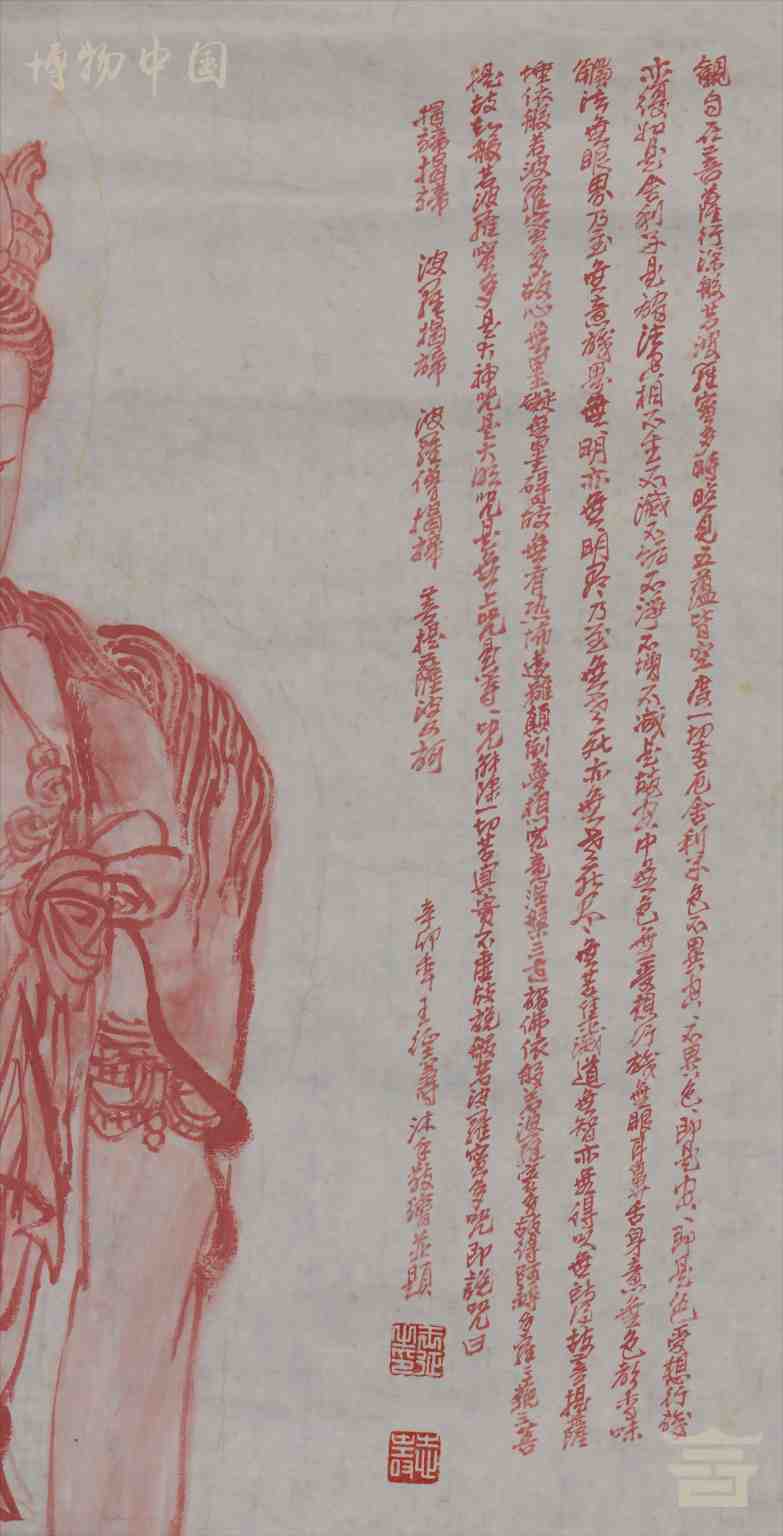 博物中国
觀自在菩薩行深般若波羅蜜多時照見五蘊皆空度一切苦厄舍利子色不異空、不異色、即是空、即是色受想行識
亦復如是舍利子是諸法空相不生不滅不垢不淨不增不減是故空中無色無受想行識無眼耳鼻舌身意無色聲香味
觸法無眼界乃至無意識界無、明亦無、明尽乃至無老死亦無老死尽無苦集滅道無智亦無得以無所得故菩提薩
埵依般若波羅蜜多故心無罣礙無罣碍故無有恐怖遠離顛倒夢想究竟涅槃三世諸佛依般若波羅蜜多故得阿耨多羅三藐三菩
提故知般若波羅蜜多是大神咒是大明咒是無上咒是無等、咒能除一切苦真實不虛故說般若波羅蜜多咒即說咒曰
揭諦揭諦 波羅揭諦 波羅僧揭諦 菩提薩婆訶 辛卯年王 壽沐手敬繪並題